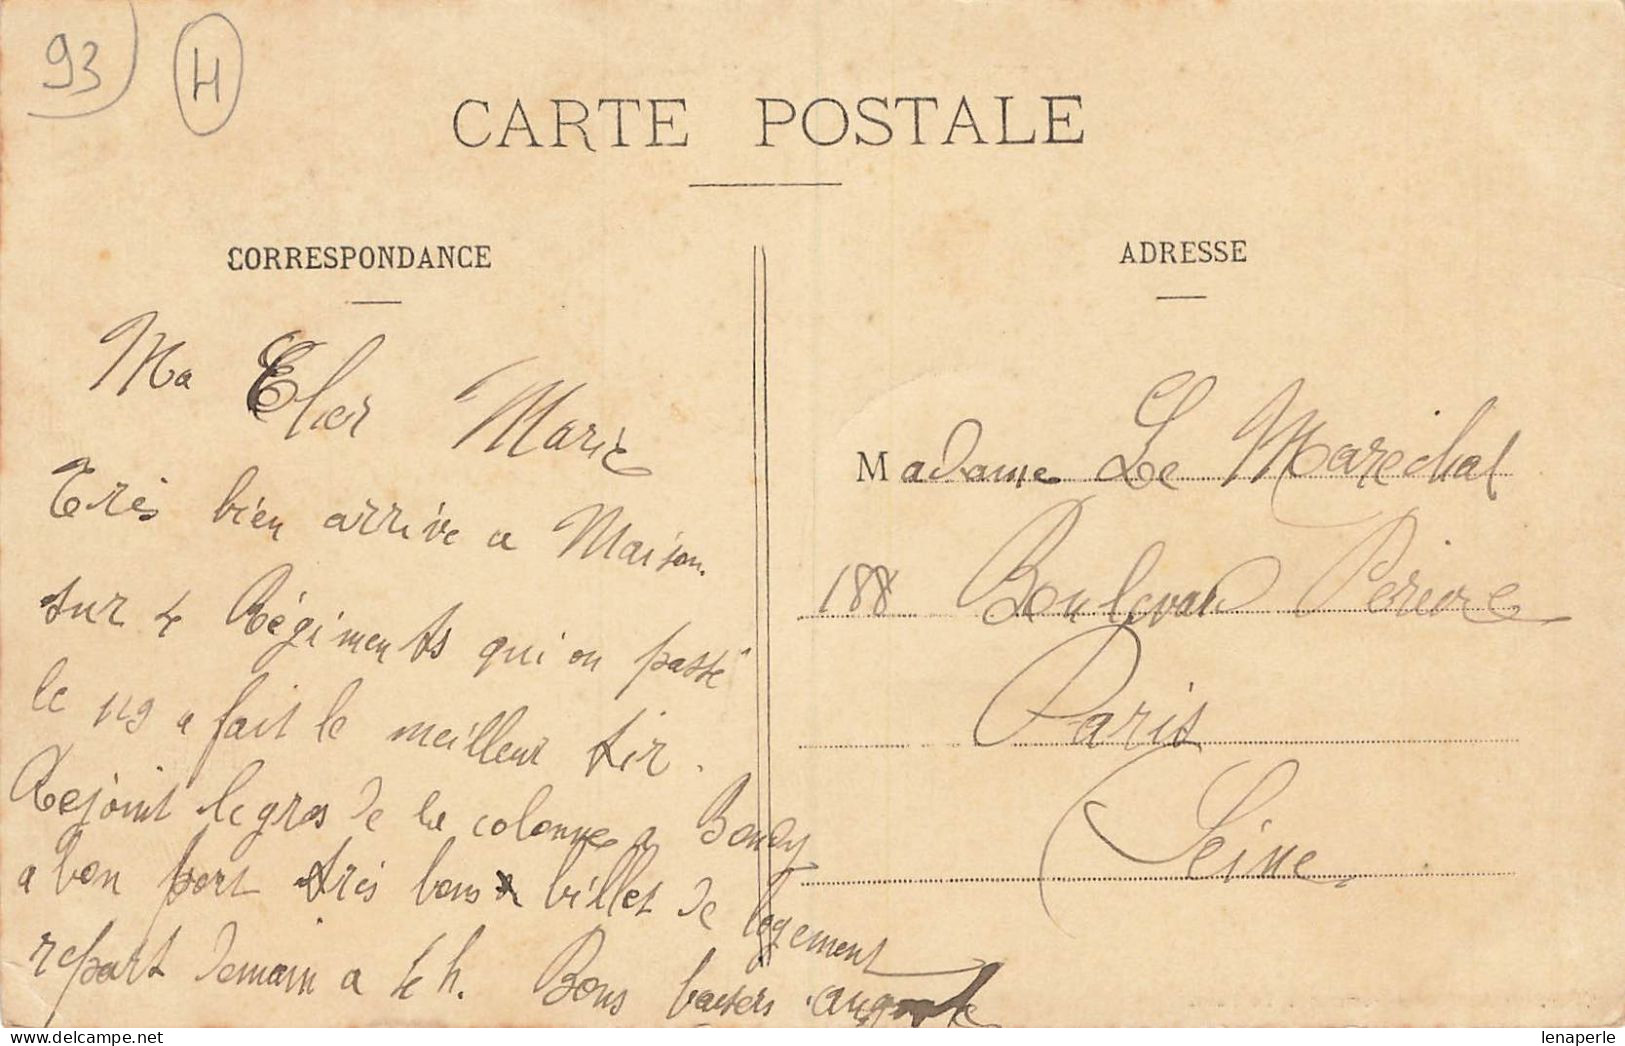 93 H
CARTE POSTALE
CORRESPONDANCE
ADRESSE
Ma Cher Marie
Très bien arrive a Maison.
sur 4 Régiments qui on passé
le 119 a fait le meilleur tir.
Rejoint le gros de la colonne a Bondy
a bon port très bons billet de logement
repart demain a 4 h. Bons baisers
Madame Le Maréchal
188 Boulevard Pereire
Paris
Seine
lenaperle